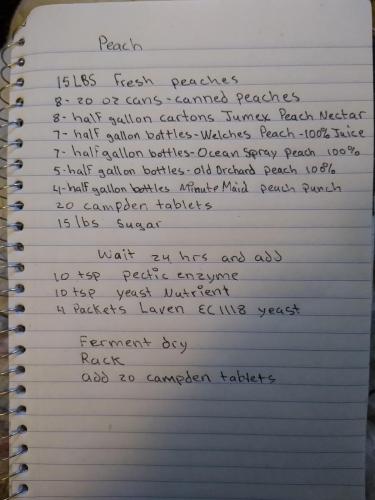 Peach
15 LBS Fresh peaches
8- 20 oz cans - canned peaches
8- half gallon cartons Jumex Peach Nectar
7- half gallon bottles- Welches Peach -100% Juice
7- half gallon bottles- Ocean Spray peach 100%
5- half gallon bottles- old Orchard peach 100%
4- half gallon bottles Minute Maid peach punch
20 campden tablets
15 lbs sugar
Wait 24 hrs and add
10 tsp pectic enzyme
10 tsp yeast Nutrient
4 Packets Laven EC 1118 yeast
Ferment dry
Rack
add 20 campden tablets